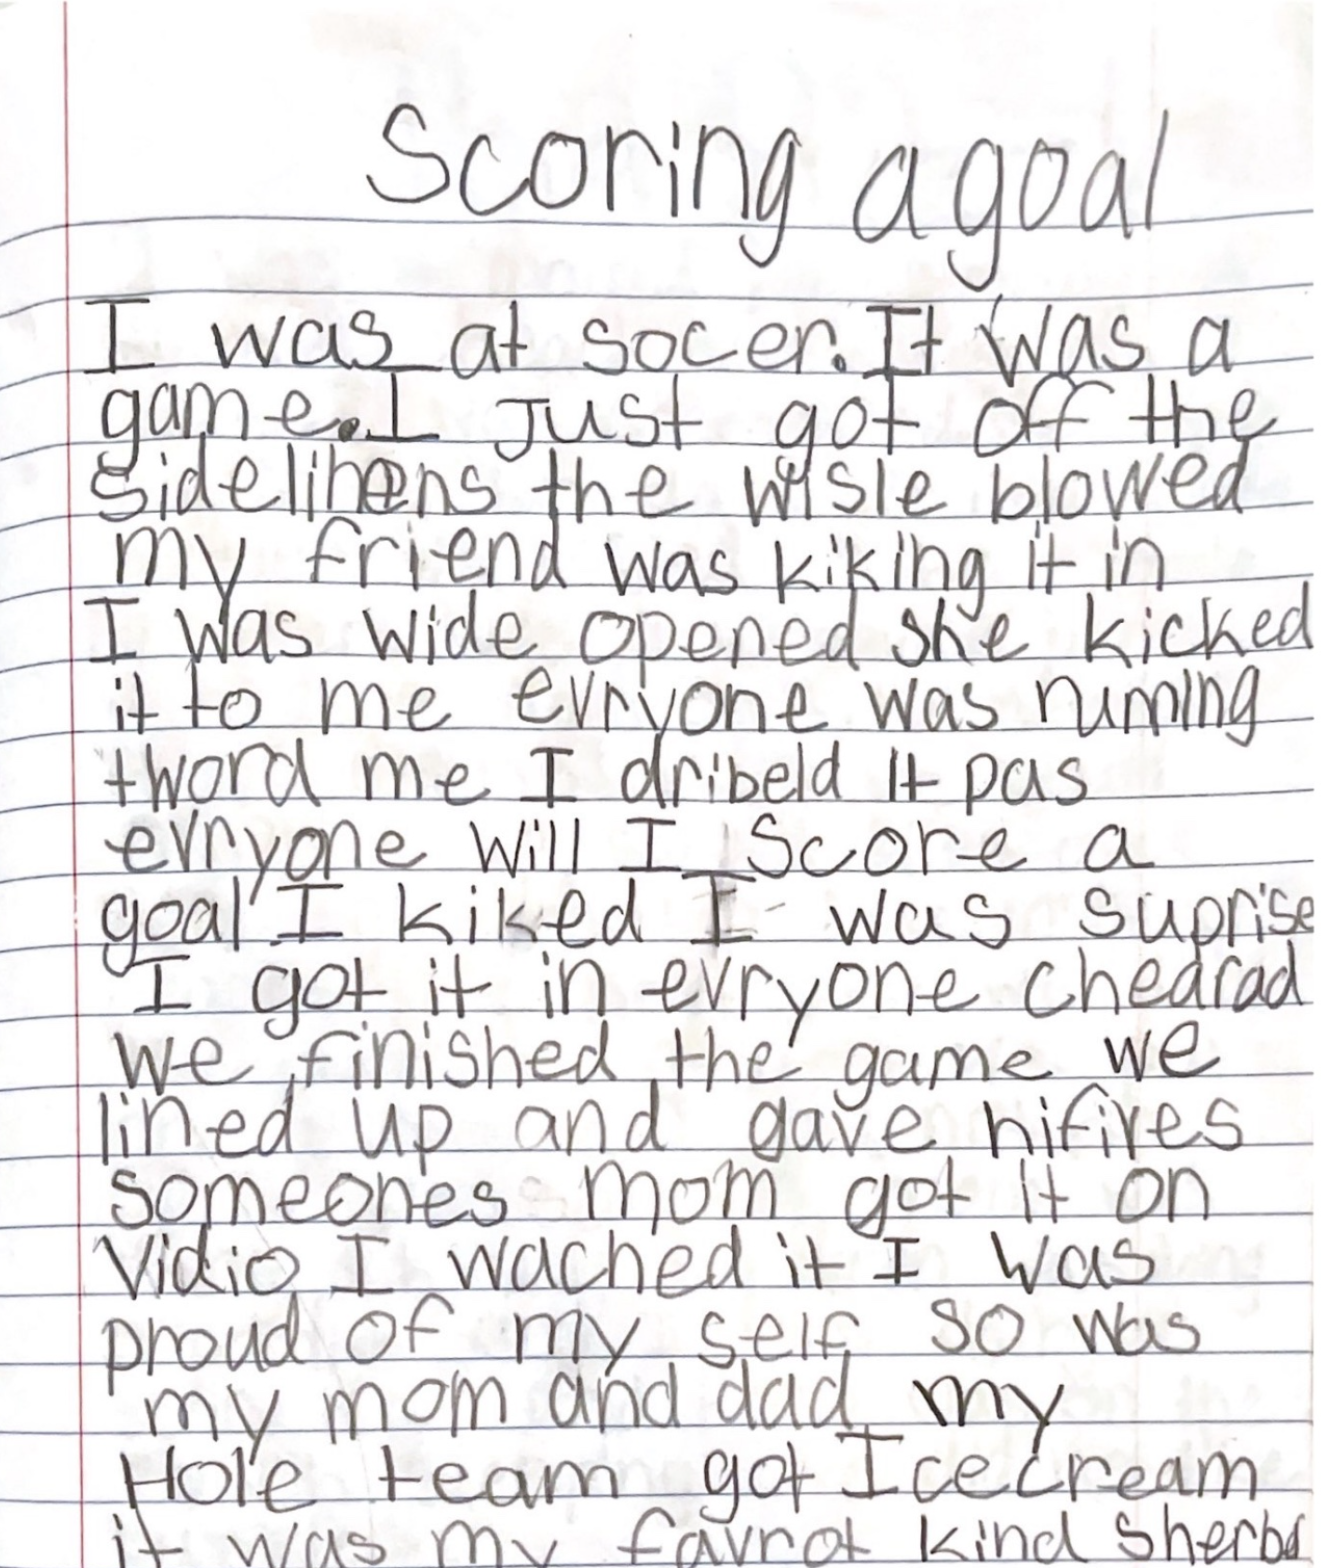 Scoring a goal
I was at socer. It was a
game. I just got off the
sidelinens the wisle blowed
my friend was kiking it in
I was wide opened she kicked
it to me evryone was runing
tword me I dribeld it pas
evryone will I score a
goal I kiked I was suprise
I got it in evryone chedrad
we finished the game we
lined up and gave hifives
someones mom got it on
vidio I wached it I was
proud of my self so was
my mom and dad my
Hole team got Icecream
it was my favrot kind